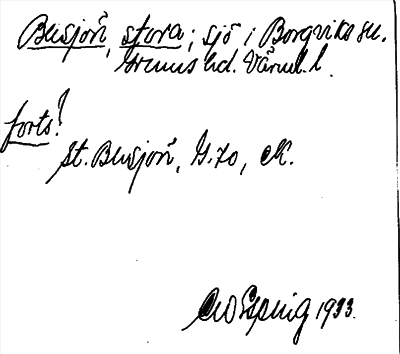 Busjön, stora; sjö i Borgviks sn.
Grums hd. Värml. l.
forts!
St. Busjön, G.70, ek.
1933.